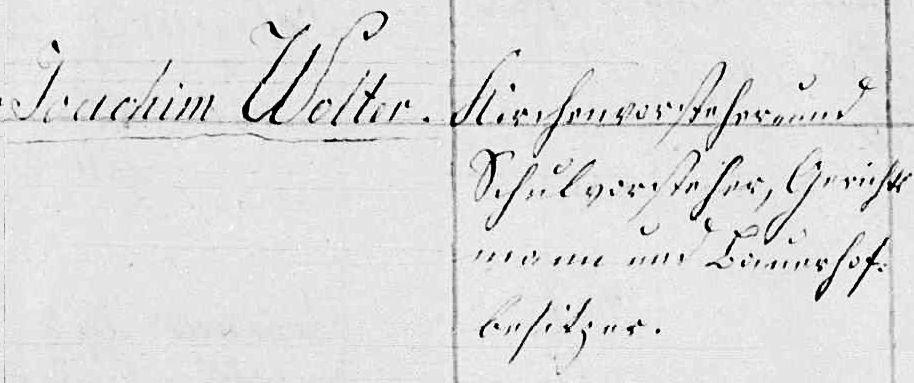 Joachim Wolter. Kirchenvorsteher und
Schulvorsteher, Gerichts
mann und Bauerhof-
besitzer.